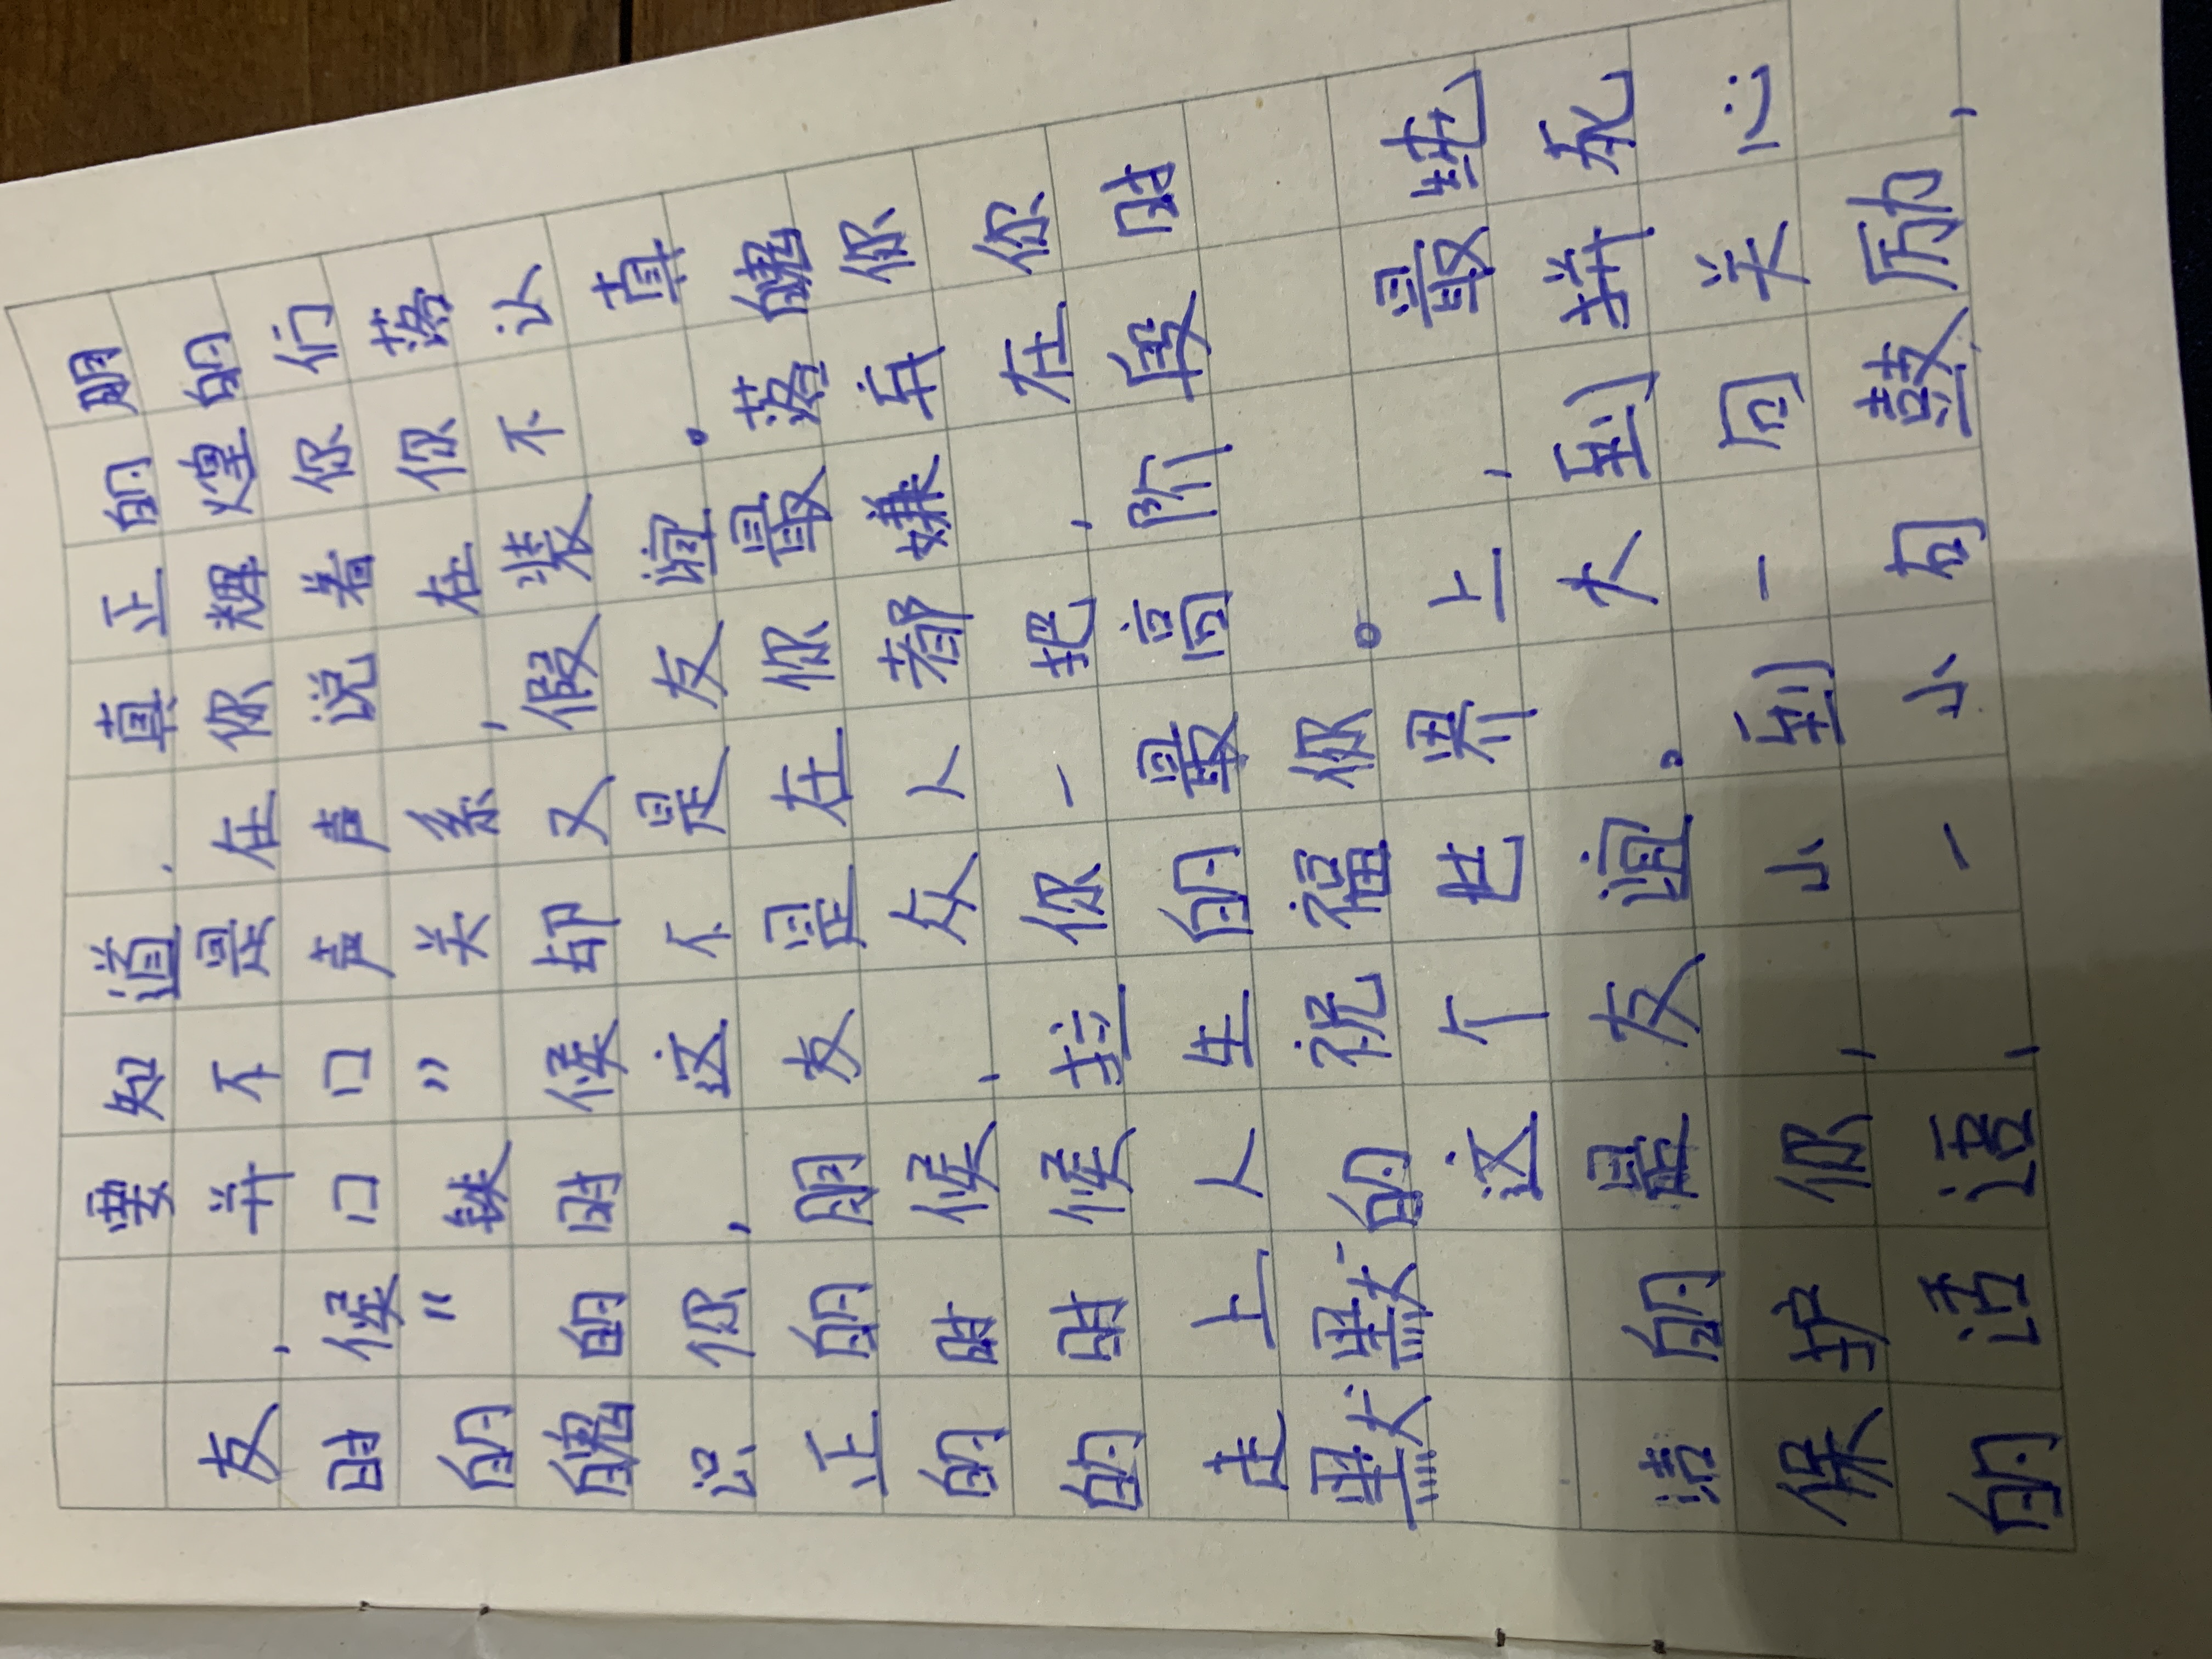 要知道,真正的朋
友,并不是在你辉煌的
时候口口声声说着你们
的“铁”关系,在你落
魄的时候却又假装不认
识你,这不是友谊。真
正的朋友是在你最落魄
的时候,众人都嫌弃你
的时候拉你一把,在你
走上人生的最高阶段时
默默的祝福你。
这个世界上,最纯
洁的是友谊。大到拼死
保护你,小到一句关心
的话语,一小句鼓励,